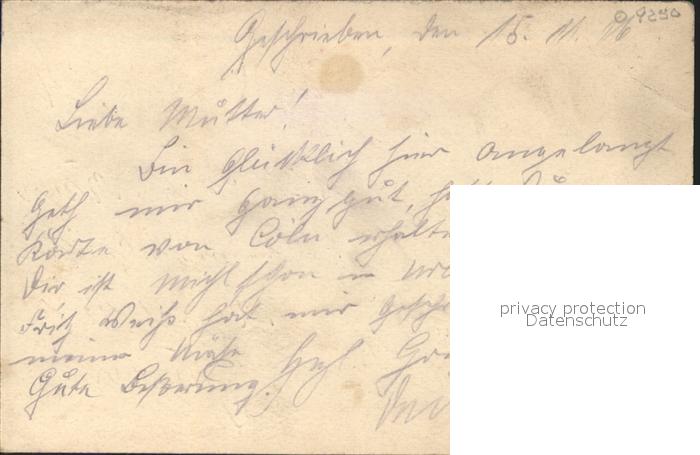 O 9290
Geschrieben, den 15. 11. 16
Liebe Mutter!
Bin Glücklich hier angelangt
Geth mir ganz gut,
Karte von Cöln
Dir ist nicht schon in
Fritz Weiß hat mir
meiner Nähe
Gute Beßerung.
privacy protection
Datenschutz